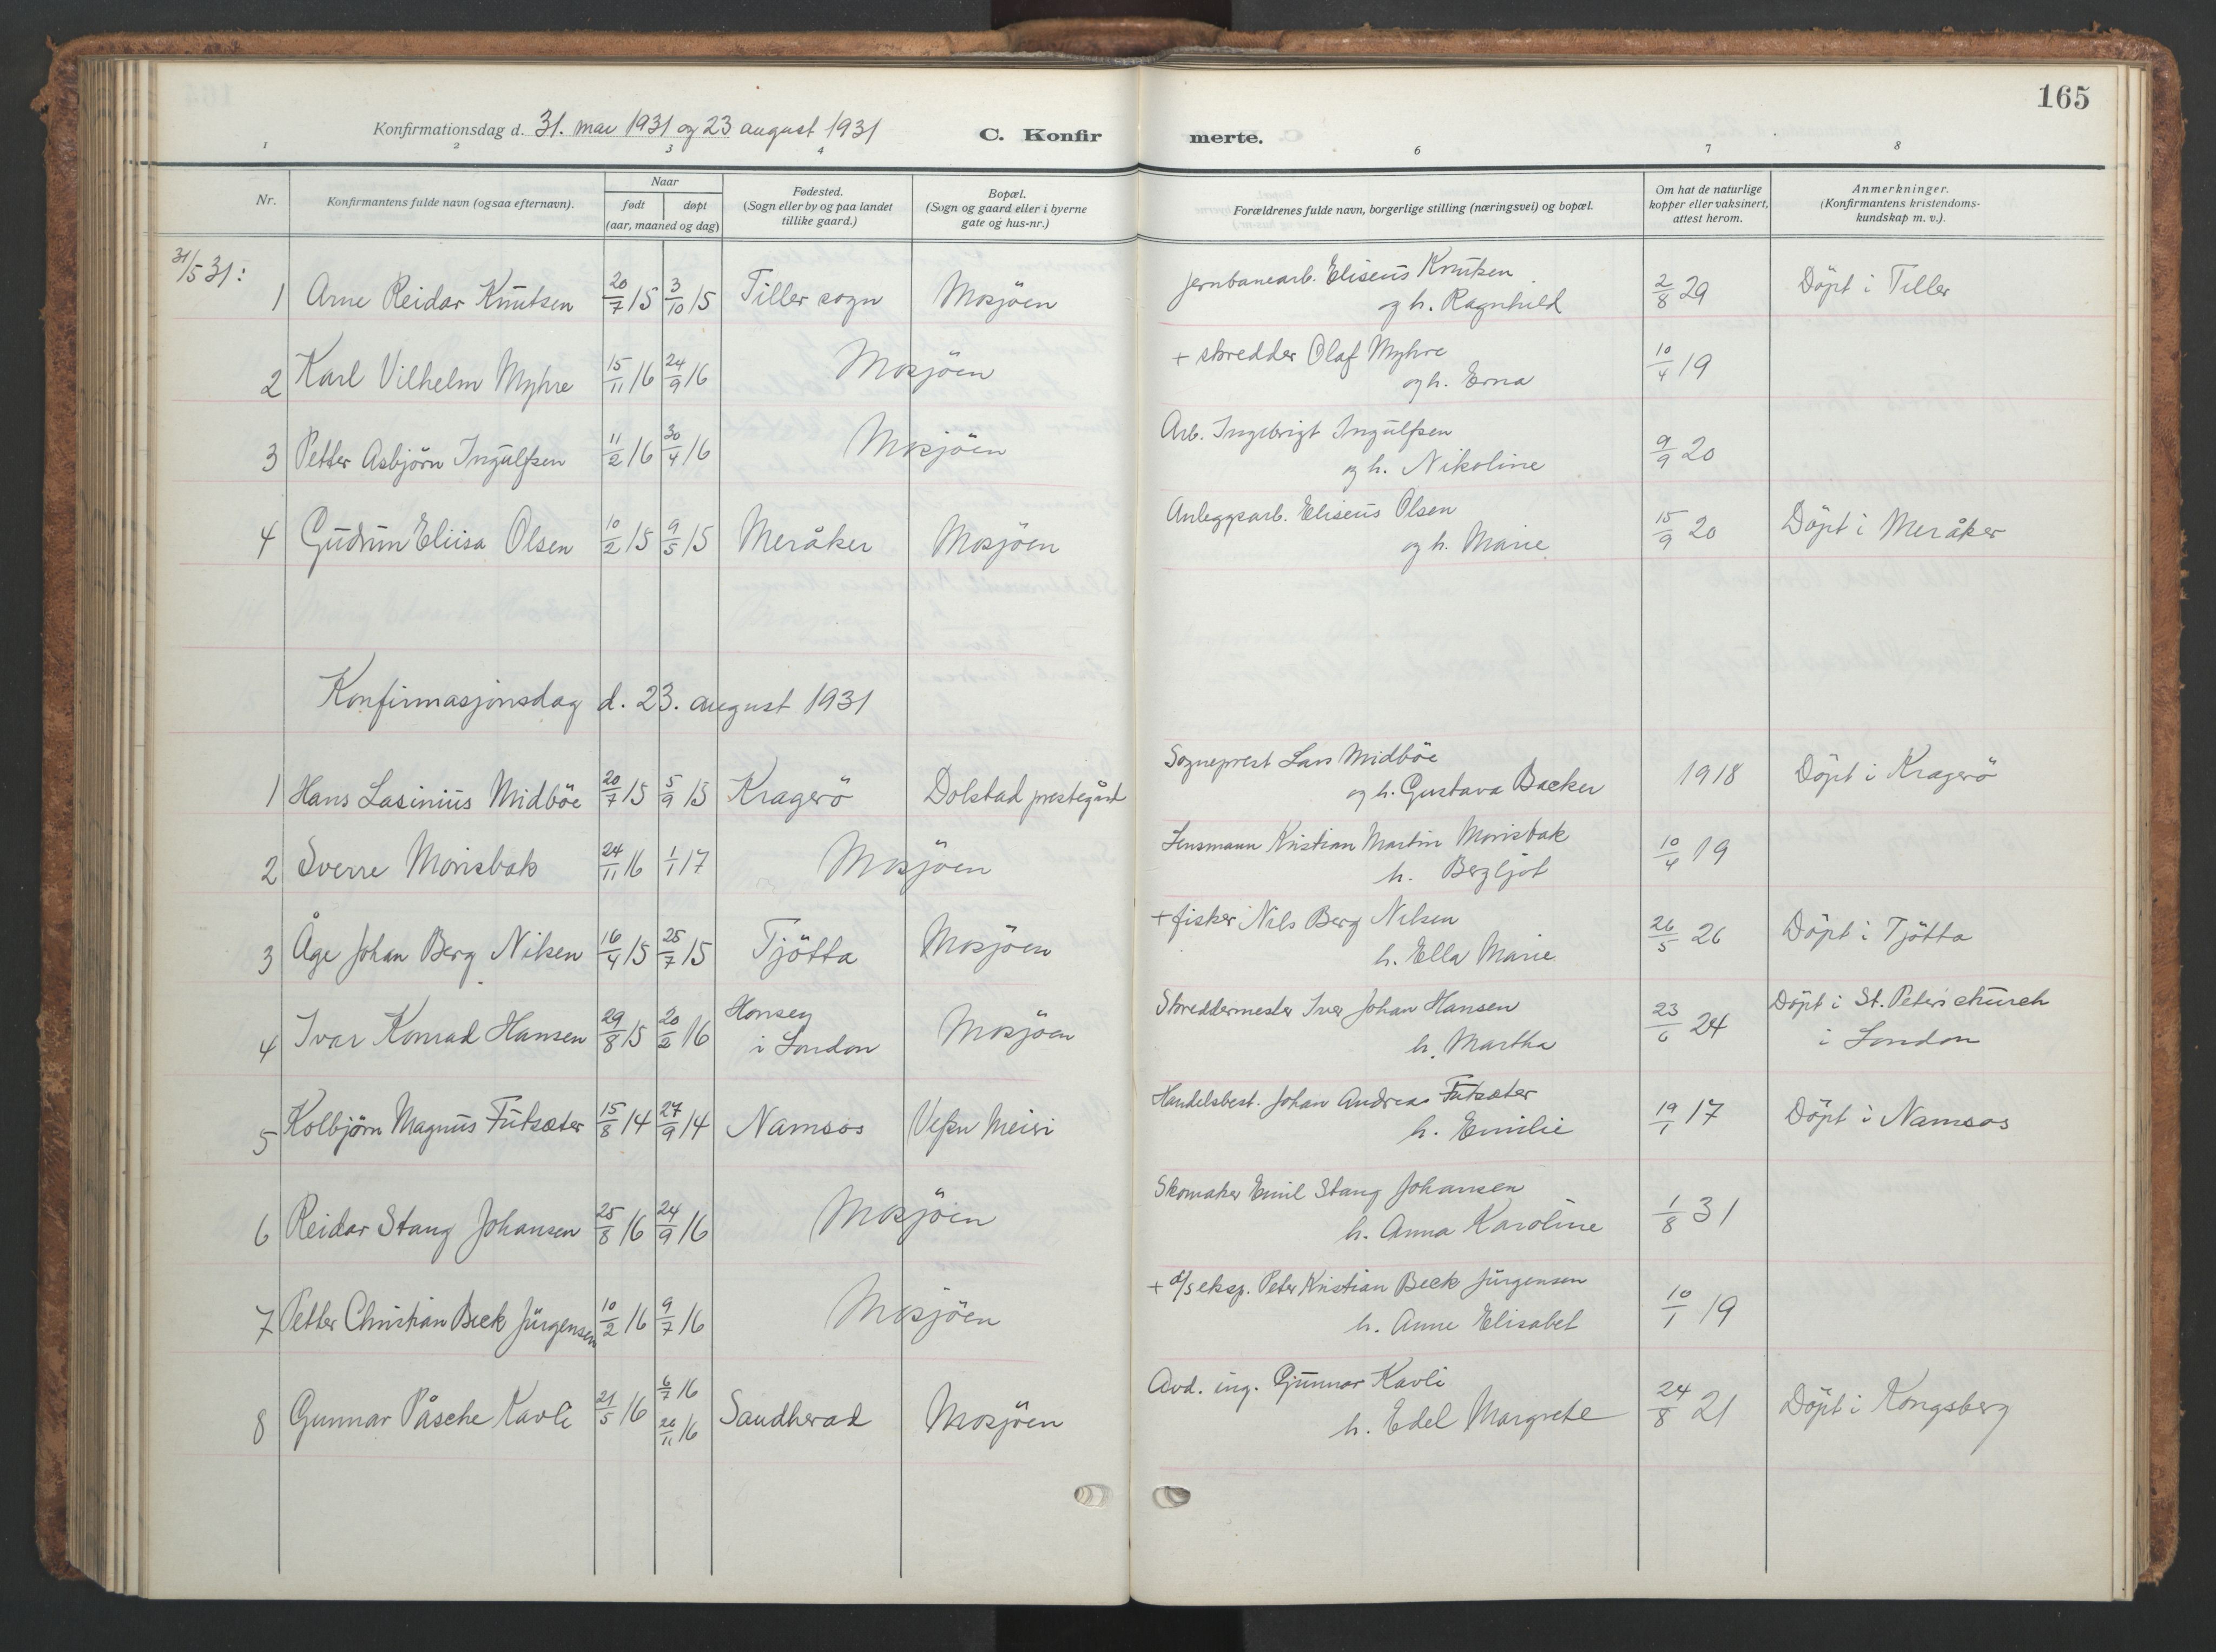 165
Konfirmationsdag d. 31. mai 1931 og 23 august 1931 C. Konfir merte.
1 2 3 4 6 7 8
Nr. Konfirmantens fulde navn (ogsaa efternavn). Naar født døpt (aar, maaned og dag) Fødested. (Sogn eller by og paa landet tillike gaard.) Bopæl. (Sogn og gaard eller i byerne gate og hus-nr.) Forældrenes fulde navn, borgerlige stilling (næringsvei) og bopæl. Om hat de naturlige kopper eller vaksinert, attest herom. Anmerkninger. (Konfirmantens kristendoms-kundskap m. v.).
31/5 31:
1 Arne Reidar Knutsen 20/7 15 3/10 15 Tiller sogn Mosjöen Jernbanearb. Eliseus Knutsen
og h. Ragnhild 2/8 29 Döpt i Tiller
2 Karl Vilhelm Myhre 15/11 16 24/9 16 Mosjöen + skredder Olaf Myhre
og h. Erna 10/4 19
3 Petter Asbjörn Ingulfsen 11/2 16 30/4 16 Mosjöen Arb. Ingebrigt Ingulfsen
og h. Nikoline 9/9 20
4 Gudrun Eliisa Olsen 10/2 15 9/5 15 Meråker Mosjöen Anleggsarb. Eliseus Olsen
og h. Marie 15/9 20 Döpt i Meråker
Konfirmasjonsdag d. 23. august 1931
1 Hans Lasinius Midböe 20/7 15 5/9 15 Kragerö Dolstad prestegård Sogneprest Lars Midböe
og h. Gustava Backer 1918 Döpt i Kragerö
2 Sverre Morisbak 24/11 16 1/1 17 Mosjöen Lensmann Kristian Martin Morisbak
h. Bergljot 10/4 19
3 Åge Johan Berg Nilsen 16/4 15 25/7 15 Tjötta Mosjöen + fisker Nils Berg Nilsen
h. Ella Marie 26/5 26 Döpt i Tjötta
4 Ivar Konrad Hansen 29/8 15 20/2 16 Honsey
i London Mosjöen Skreddermester Iver Johan Hansen
h. Martha 23/6 24 Döpt i St. Peters church
i London
5 Kolbjörn Magnus Futsæter 15/8 14 27/9 14 Namsos Vefsn Meieri Handelsbest. Johan Andreas Futsæter
h. Emilie 19/1 17 Döpt i Namsos
6 Reidar Stang Johansen 25/8 16 24/9 16 Mosjöen Skomaker Emil Stang Johansen
h. Anna Karoline 1/8 31
7 Petter Christian Beck Jürgensen 10/2 16 9/7 16 Mosjöen + d/s eksp. Peter Kristian Beck Jürgensen
h. Anne Elisabet 10/1 19
8 Gunnar Påsche Kavli 21/5 16 6/7 16 26/11 16 Saudherad Mosjöen Avd. ing. Gunnar Kavli
h. Edel Margrete 24/8 21 Döpt i Kongsberg